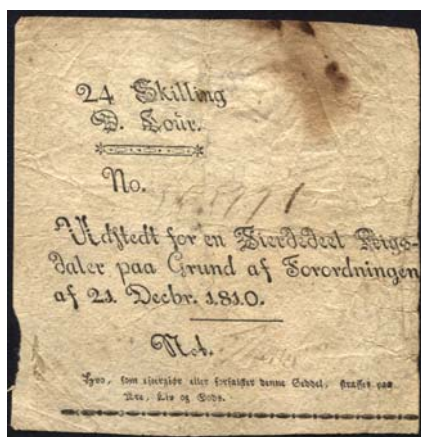 24 Skilling
D. Cour.
No.
Udstedt for en Fierdedeel Rigs-
daler paa Grund af Forordningen
af 21. Decbr. 1810.
Not.
Hvo, som eftergiør eller forfalsker denne Seddel, straffes paa
Ære, Liv og Gods.